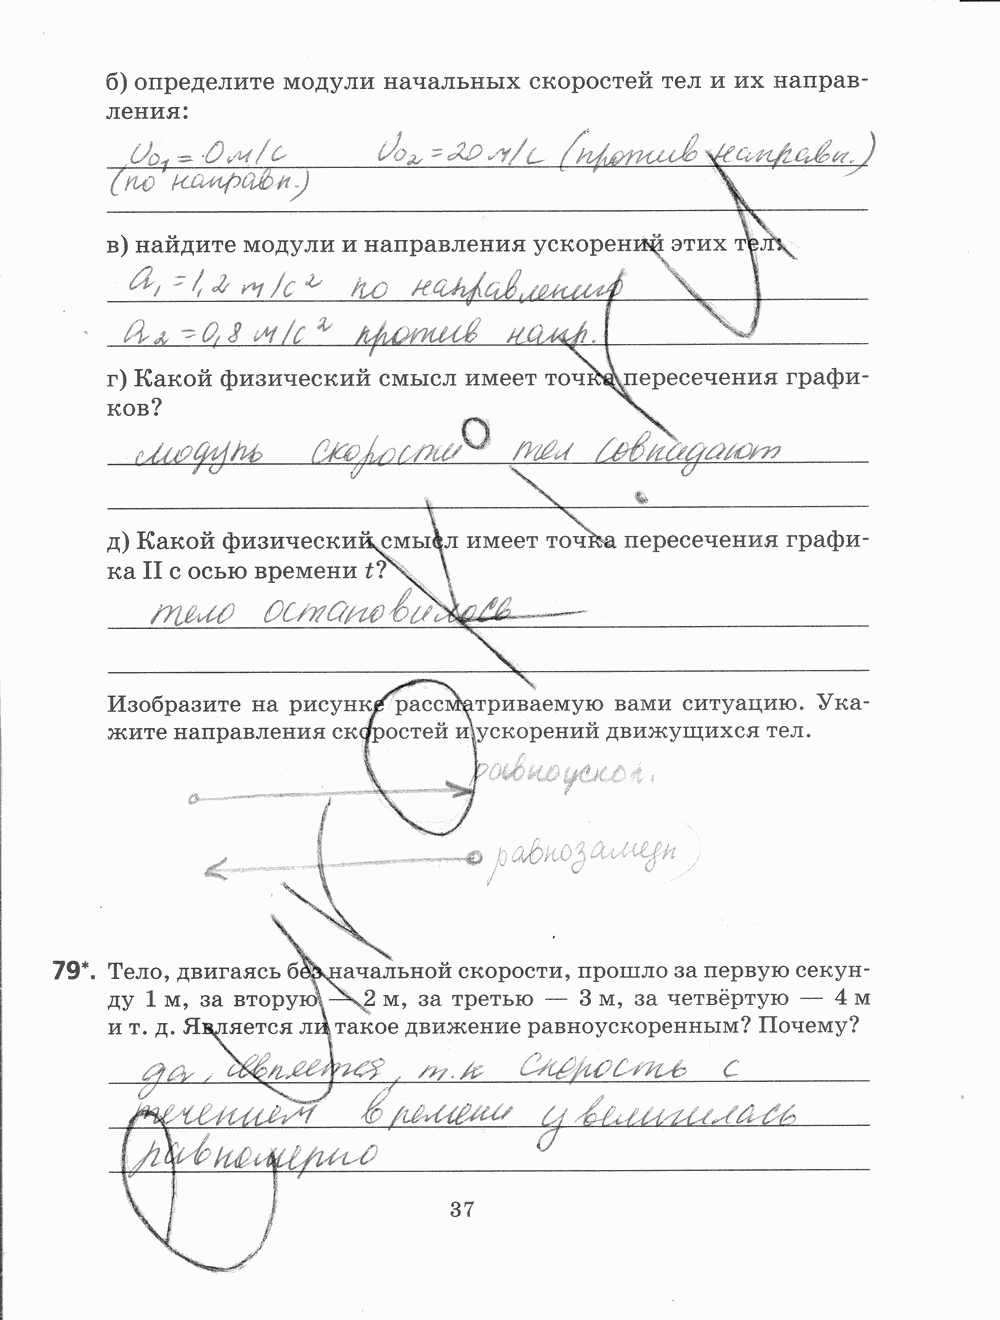 б) определите модули начальных скоростей тел и их направ-
ления:
υ₀₁ = 0 м/с υ₀₂ = 20 м/с (против направл.)
(по направл.)
в) найдите модули и направления ускорений этих тел:
a₁ = 1,2 м/с² по направлению
a₂ = 0,8 м/с² против напр.
г) Какой физический смысл имеет точка пересечения графи-
ков?
модуль скорости тел совпадают
д) Какой физический смысл имеет точка пересечения графи-
ка II с осью времени t?
тело остановилось
Изобразите на рисунке рассматриваемую вами ситуацию. Ука-
жите направления скоростей и ускорений движущихся тел.
равноускор.
равнозамедл
79*. Тело, двигаясь без начальной скорости, прошло за первую секун-
ду 1 м, за вторую — 2 м, за третью — 3 м, за четвёртую — 4 м
и т. д. Является ли такое движение равноускоренным? Почему?
да, является, т.к скорость с
течением времени увеличилась
равномерно
37